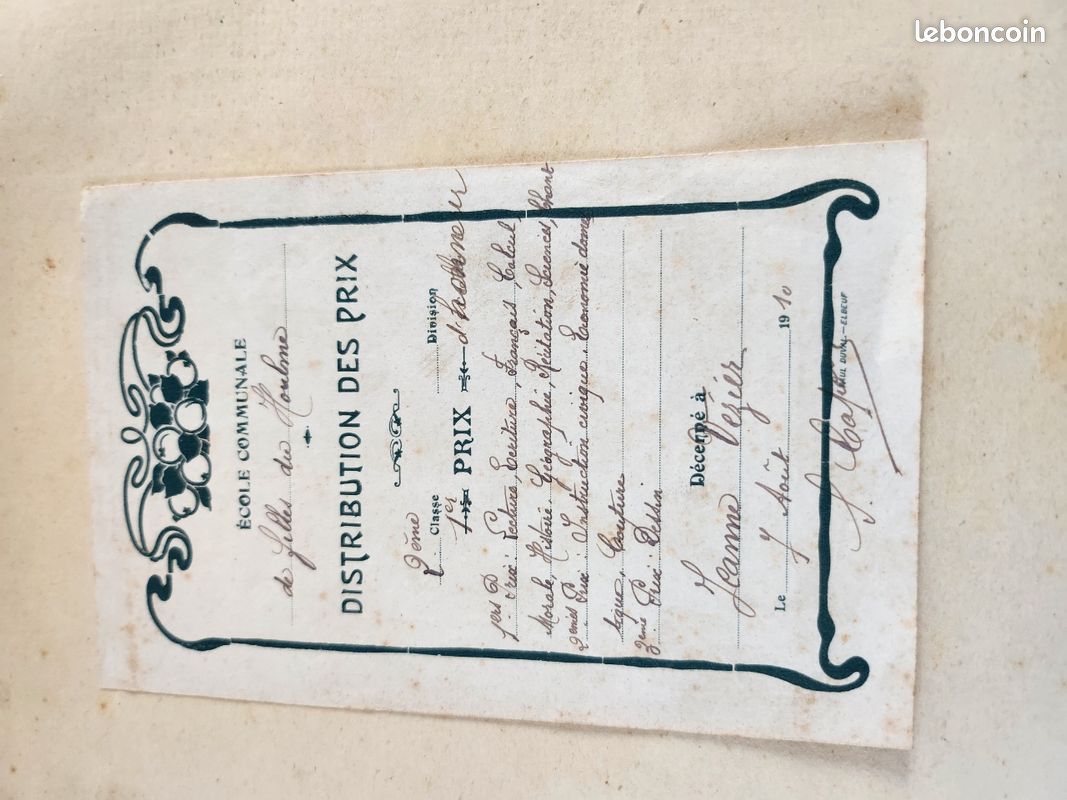 leboncoin
ÉCOLE COMMUNALE
de filles du Houlme
DISTRIBUTION DES PRIX
2ème Classe Division
1er PRIX d'honneur
1ers Prix: Lecture, Ecriture, Français, Calcul,
Morale, Histoire, Géographie, Récitation, Sciences, Chant
2èmes Prix: Instruction civique, Economie domes
tique, Couture
3ème Prix: Dessin
Décerné à
Jeanne Vézier
Le 7 Août 1910
PAUL DUVAL.—ELBEUF